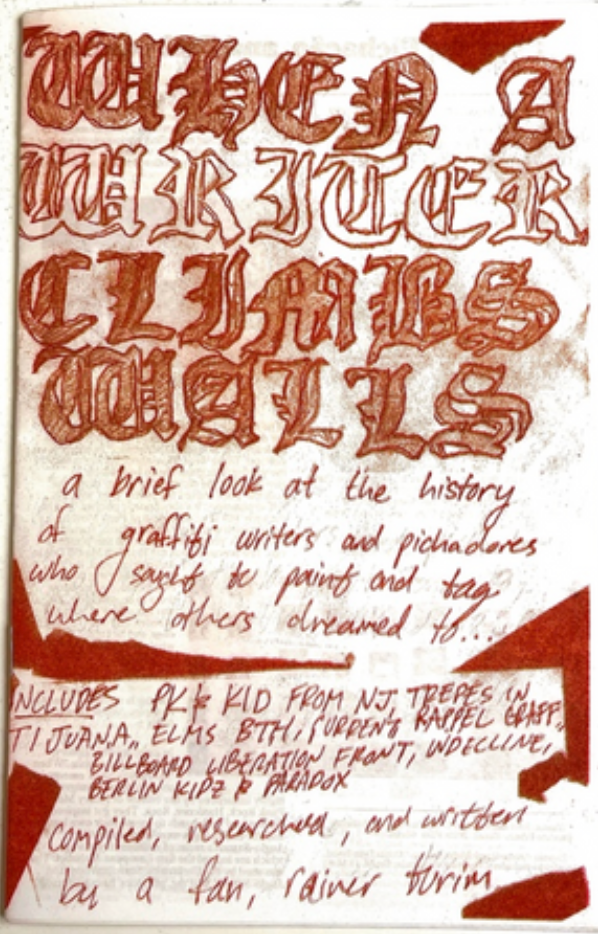 WHEN A
WRITER
CLIMBS
WALLS
a brief look at the history
of graffiti writers and pichadores
who sought to paint and tag
where others dreamed to...
INCLUDES PK & KID FROM NJ, TREPES IN
TIJUANA, ELMS BTH, RAPPEL GRAFF,
BILLBOARD LIBERATION FRONT, INDECLINE,
BERLIN KIDZ & PARADOX
compiled, researched, and written
by a fan, rainer turim